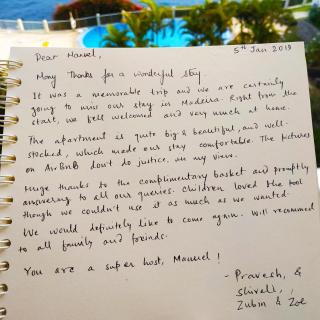 Dear Manuel,
5th Jan 2019
Many Thanks for a wonderful stay.
It was a memorable trip and we are certainly
going to miss our stay in Madeira. Right from the
start, we felt welcomed and very much at home.
The apartment is quite big & beautiful, and well-
stocked, which made our stay comfortable. The pictures
on AirBnB don't do justice, in my view.
Huge thanks to the complimentary basket and promptly
answering to all our queries. Children loved the pool
though we couldn't use it as much as we wanted.
We would definitely like to come again. Will recommend
to all family and freinds.
You are a super host, Manuel!
- Pravesh, &
Shivali,
Zubin & Zoe